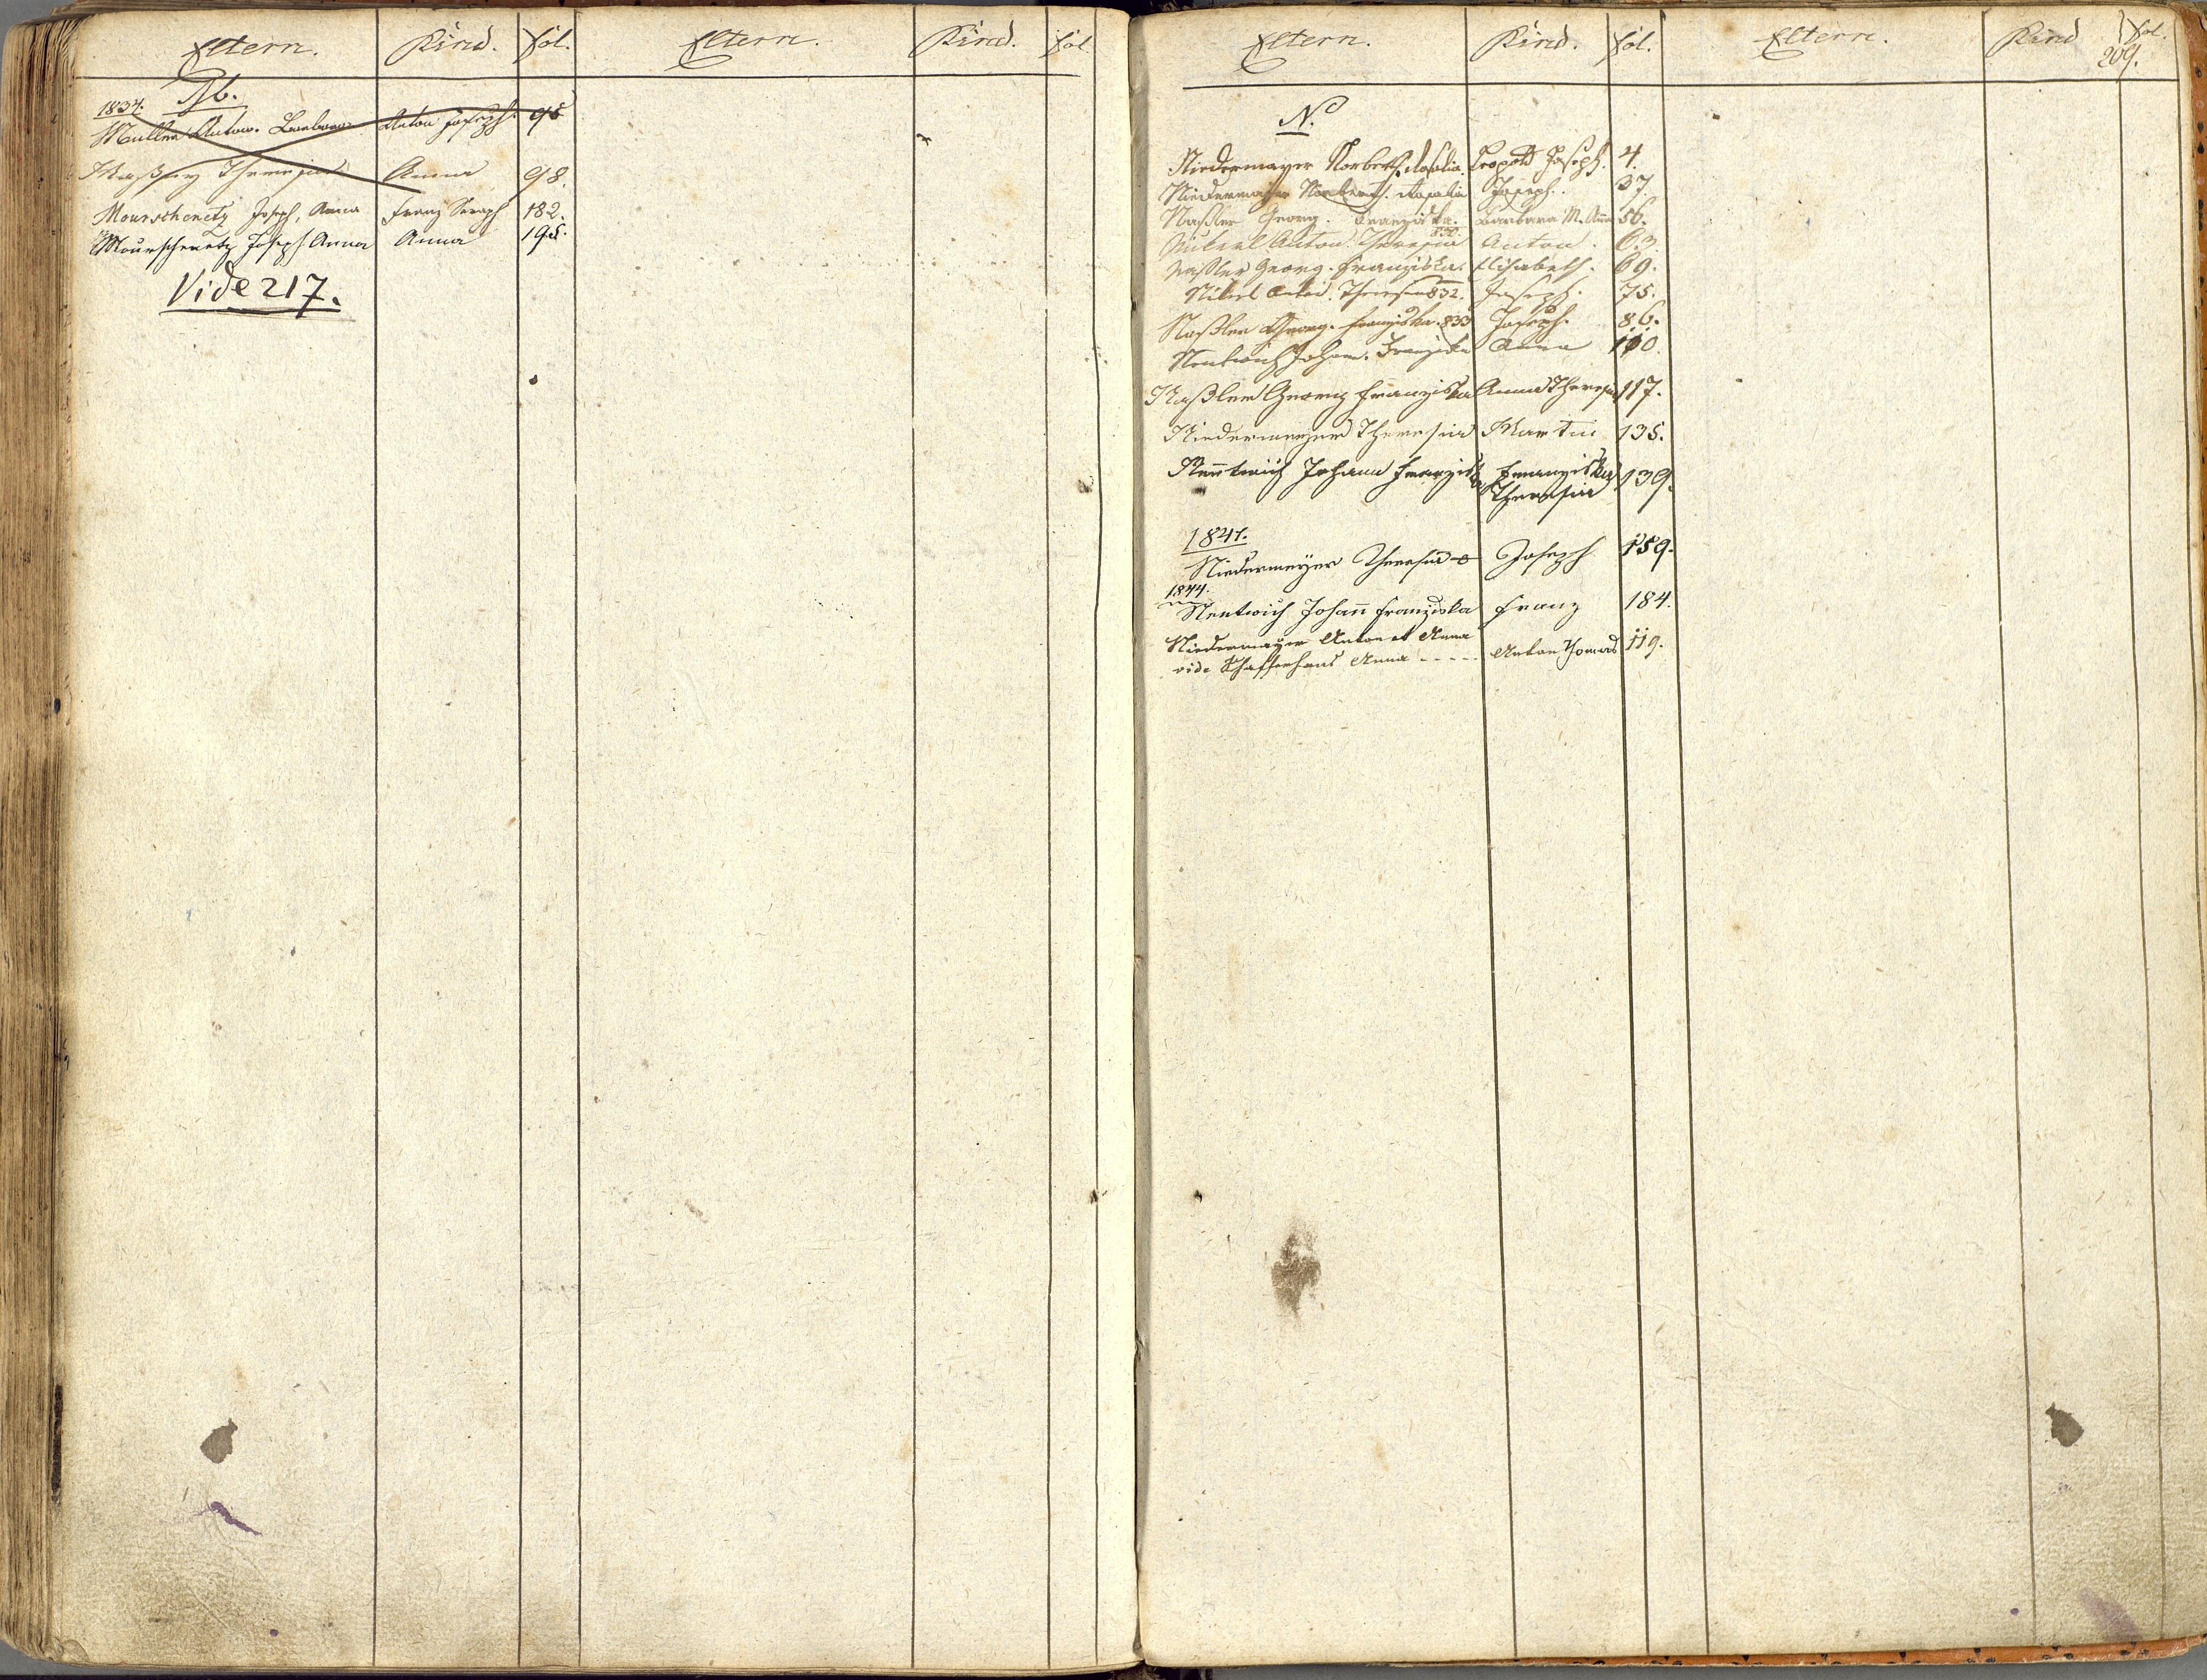 Eltern. Kind. Fol. Eltern. Kind. Fol.
M.
1834.
Müller Anton. Barbara Anton Joseph. 95
Theresia Anna 98.
Mourschenetz Joseph, Anna Franz Seraph 182.
Mourschenetz Joseph Anna Anna 195.
Vide 217.
Eltern. Kind. Fol. Eltern. Kind Fol.
209.
N.
Niedermayer Norbert. Rosalia. Leopold Joseph. 4.
Niedermayer Norbert. Rosalia Joseph. 37.
Naßler Georg. Franziska. Barbara M. Anna 56.
830.
Anton. Theresia Anton. 63.
Naßler Georg. Franziska. Elisabeth. 69.
Anton. Theresia 832. Joseph. 75.
Naßler Georg. Franziska. 833 Joseph. 86.
Nentwich Johann. Franziska Anna 110.
Naßler Georg Franziska Anna Theresia 117.
Niedermeyer Theresia Martin 135.
Nentwich Johann Franziska Franziska 139.
Theresia
1841.
Niedermeyer Theresia Joseph 159.
1844.
Nentwich Johann Franziska Franz 184.
Niedermayer Anton et Anna
vide Anna - - - - - Anton Thomas 119.